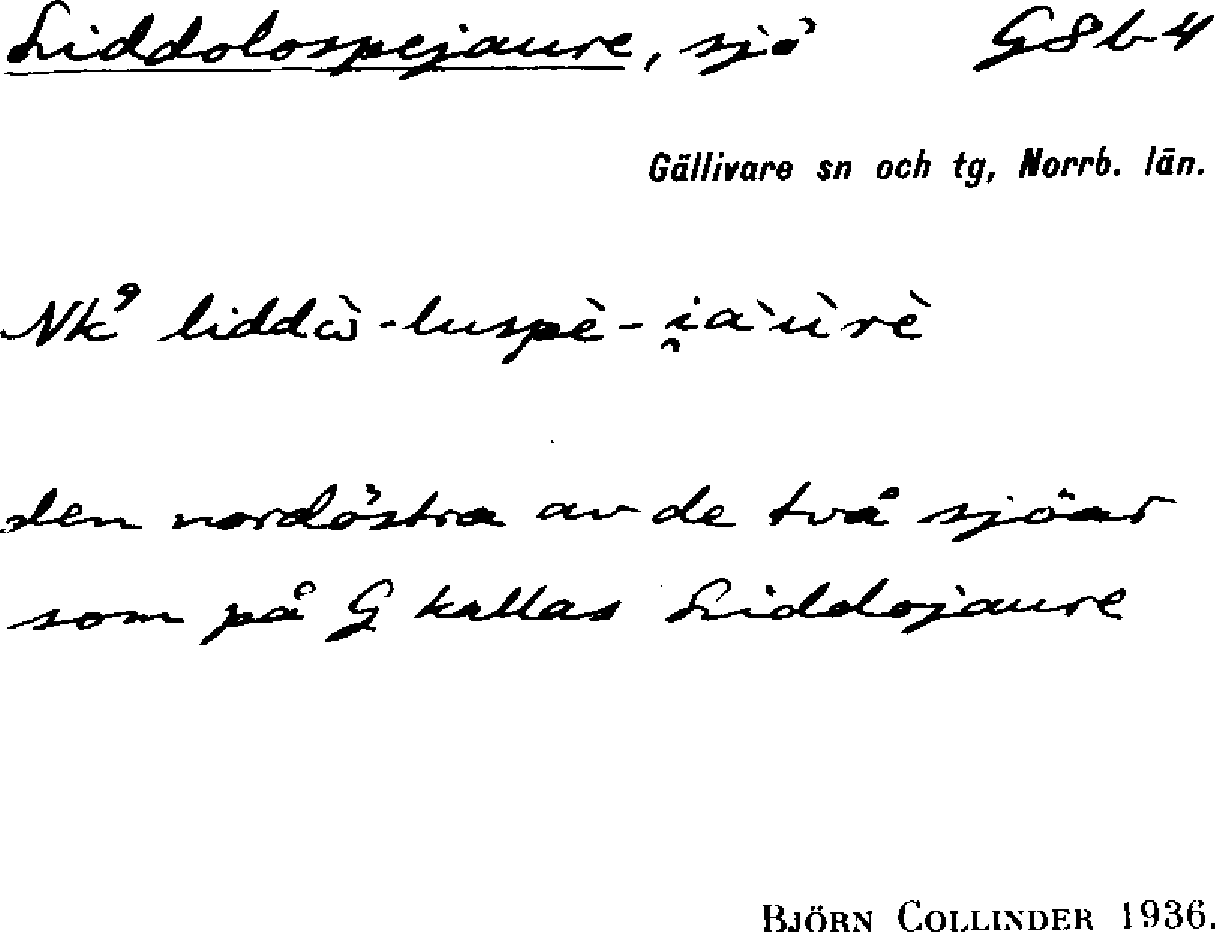 Liddolospejaure, sjö G8b4
Gällivare sn och tg, Norrb. län.
Nk⁹ liddὼ-luspè-i̯a`ùrè
den nordöstra av de två sjöar
som på G kallas Liddojaure
BJÖRN COLLINDER 1936.